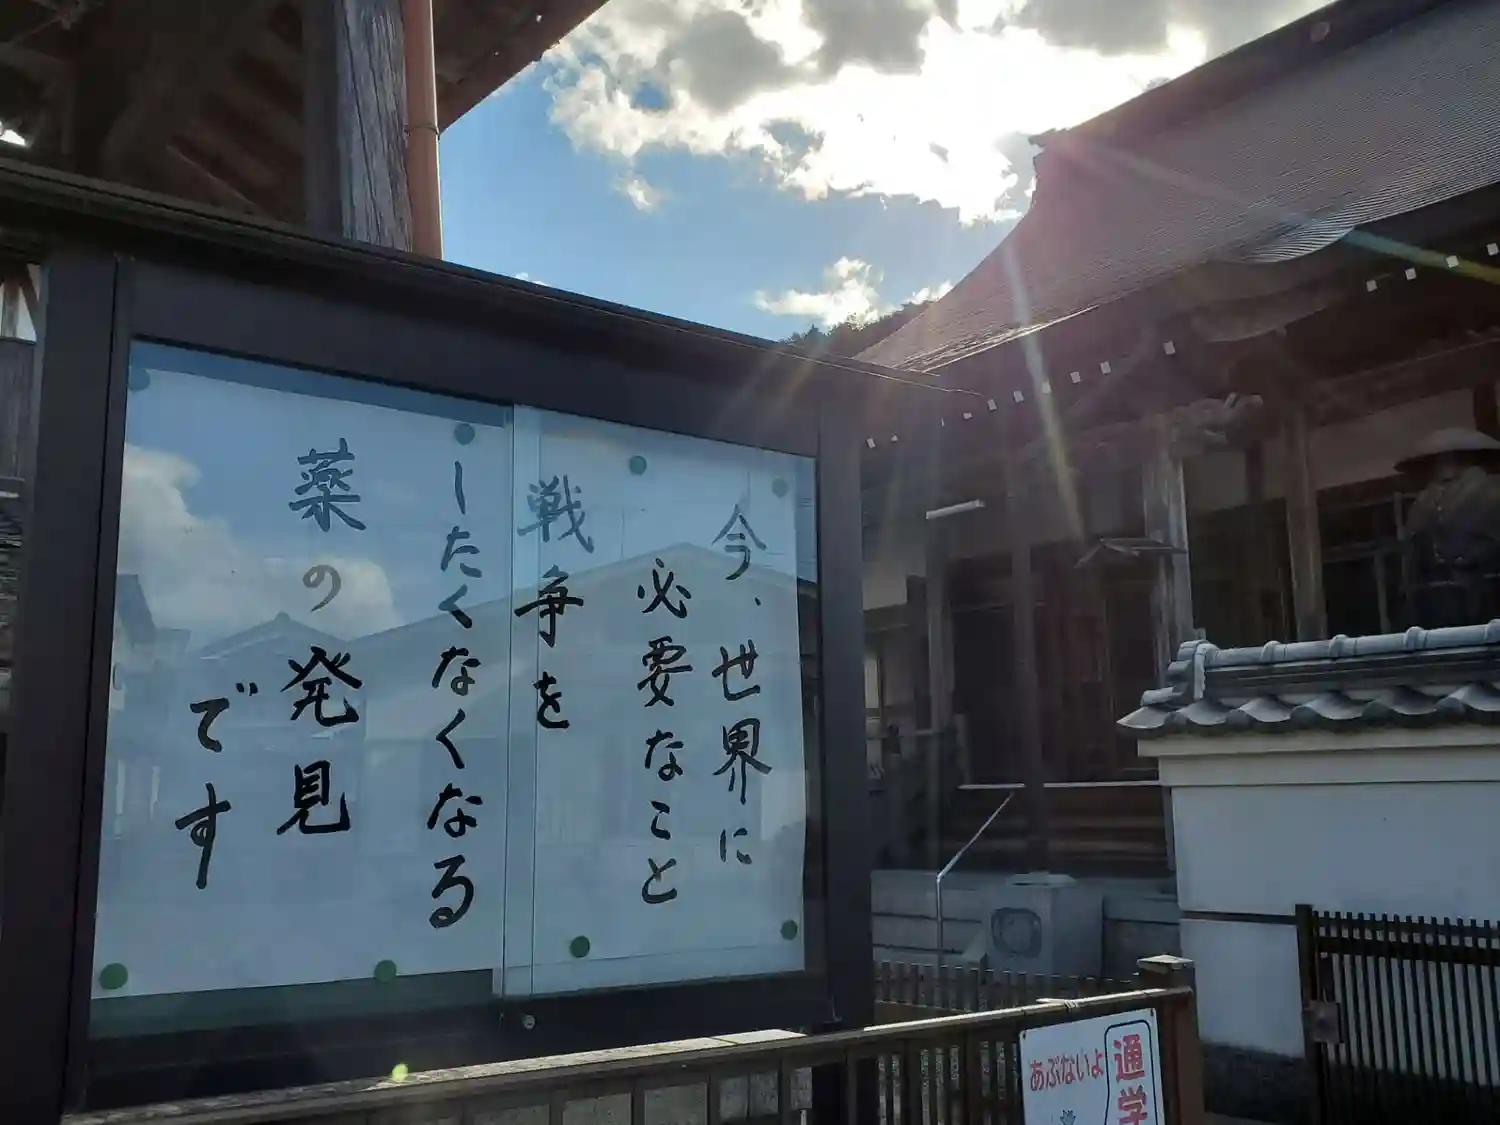 今、世界に
必要なこと
戦争を
したくなくなる
薬の発見
です
あぶないよ
通学